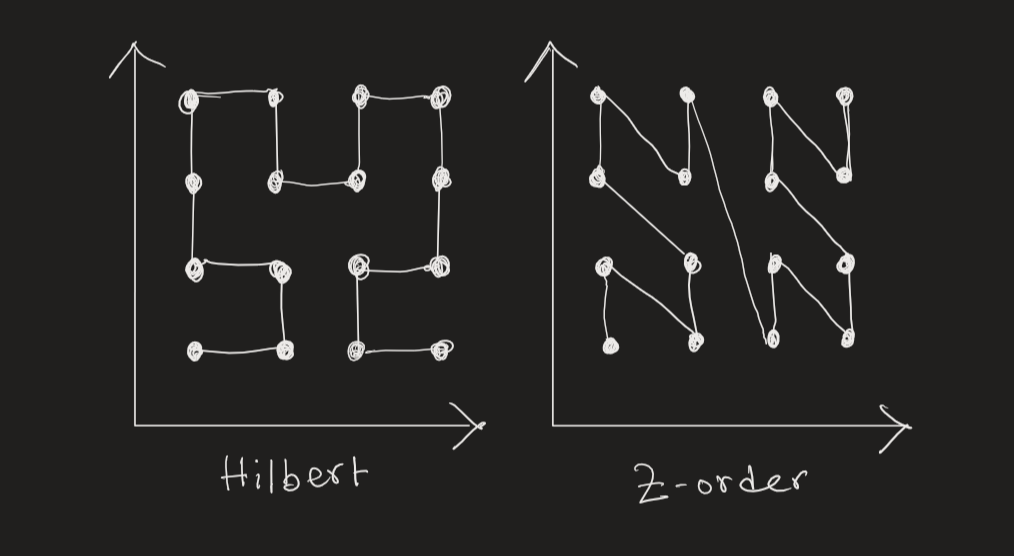 Hilbert
Z-order